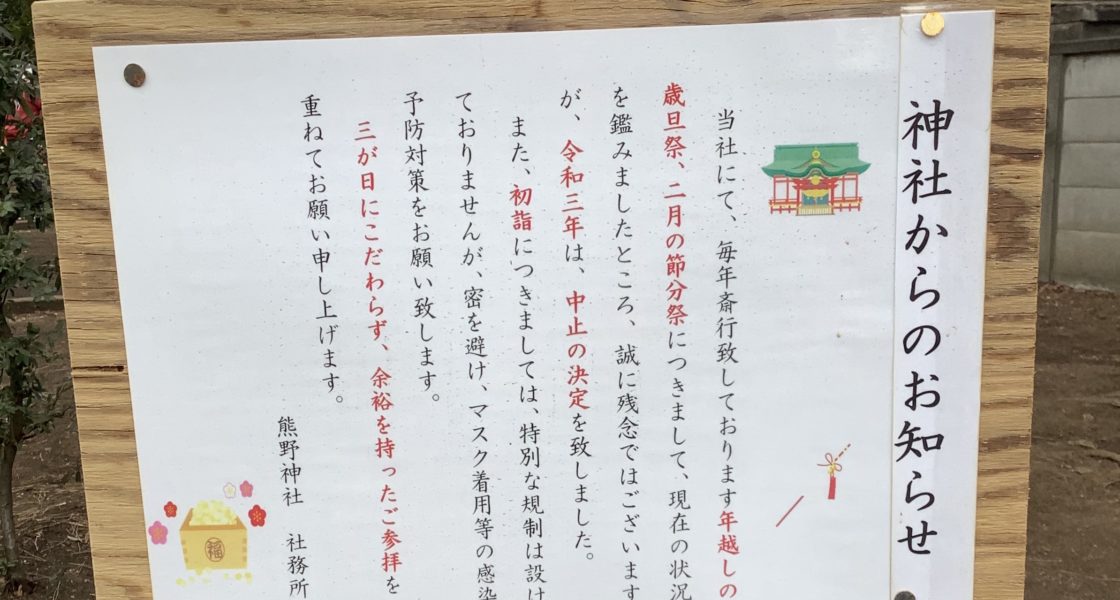 神社からのお知らせ
当社にて、毎年斎行致しております年越しの
歳旦祭、二月の節分祭につきまして、現在の状況
を鑑みましたところ、誠に残念ではございます
が、令和三年は、中止の決定を致しました。
また、初詣につきましては、特別な規制は設け
ておりませんが、密を避け、マスク着用等の感染
予防対策をお願い致します。
三が日にこだわらず、余裕を持ったご参拝を
重ねてお願い申し上げます。
熊野神社 社務所
福